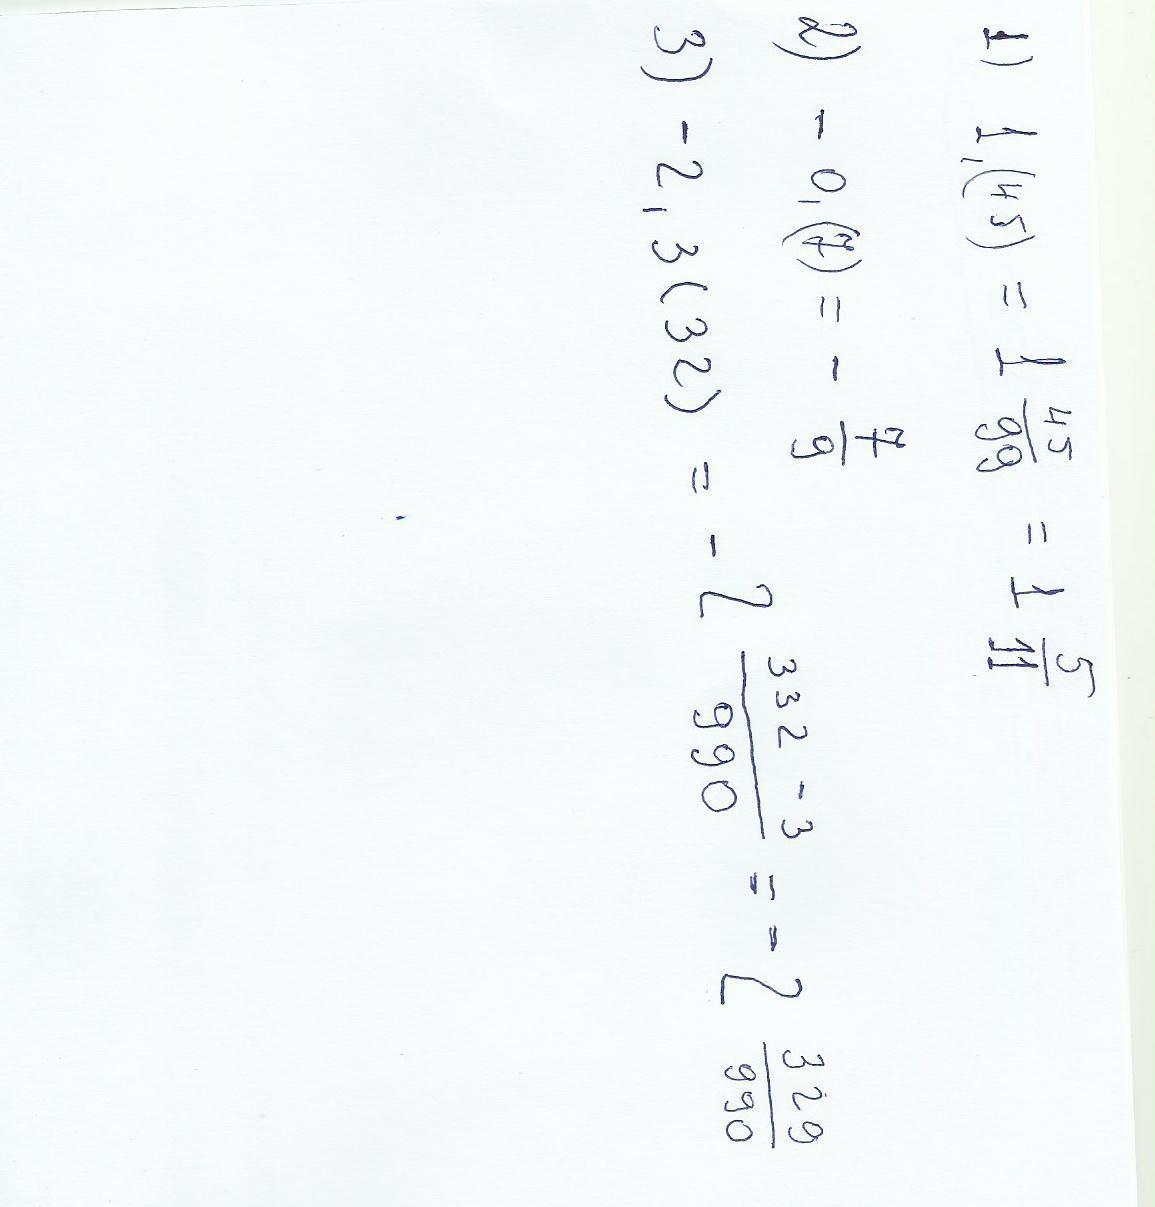 1) 1,(45) = 1 45/99 = 1 5/11
2) - 0,(7) = - 7/9
3) - 2,3(32) = - 2 332 - 3/990 = - 2 329/990